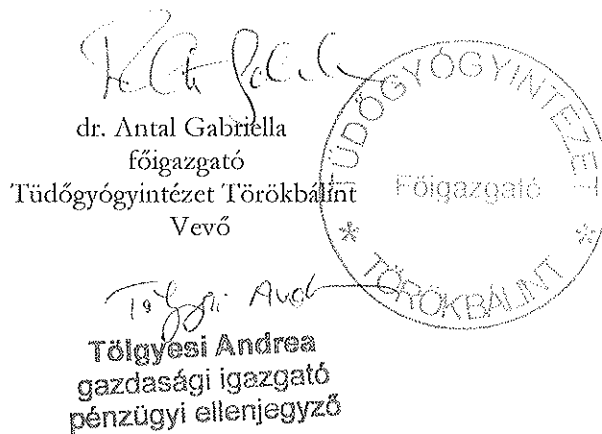 dr. Antal Gabriella
főigazgató
Tüdőgyógyintézet Törökbálint
Vevő
TÜDŐGYÓGYINTÉZET
Főigazgató
* TÖRÖKBÁLINT *
Tölgyesi Andrea
gazdasági igazgató
pénzügyi ellenjegyző